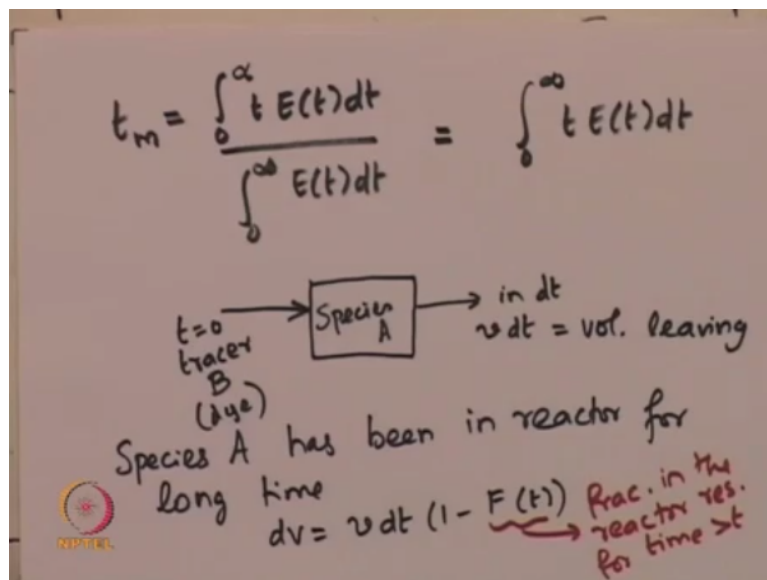 tm = ∫₀^α t E(t) dt / ∫₀^∞ E(t) dt = ∫₀^∞ t E(t) dt
t=0
tracer
B
(dye)
Species
A
in dt
v dt = vol. leaving
Species A has been in reactor for
long time
dv = v dt (1 - F(t))
frac. in the
reactor res.
for time >t
NPTEL